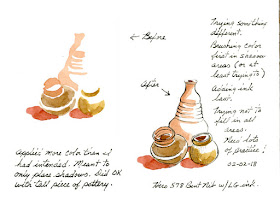 ← Before
After →
Applied more color than I
had intended. Meant to
only place shadows. Did OK
with tall piece of pottery.
Trying something
different.
Brushing color
first in shadow
areas (or at
least trying to)
Adding ink
last.
Trying not to
fill in all
areas.
Need lots
of practice!
02-02-18
578 Bent Nib w/LG ink.